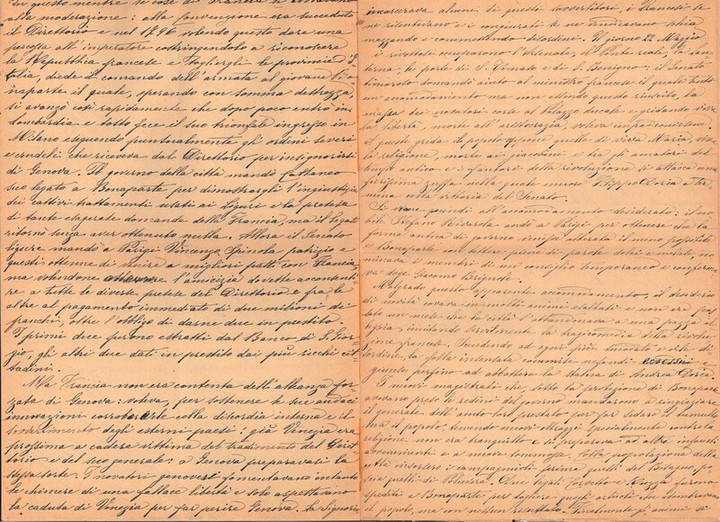 In questo mentre le cose di Francia si
alla moderazione: alla Convenzione era succeduto
il Direttorio e nel 1796 volendo questo dare una
all'imperatore costringendolo a riconoscere
la Repubblica francese e togliergli le provincie d'I-
talia, diede il comando dell'armata al giovane Bo-
naparte il quale, operando con somma destrezza
si avanzò così rapidamente che dopo poco entrò in
Lombardia e tosto fece il suo trionfale ingresso in
Milano eseguendo puntualmente gli ordini severi
e crudeli che riceveva dal Direttorio per insignorirsi
di Genova. Il governo della città mandò Cattaneo
suo legato a Bonaparte per dimostrargli l'ingiustizia
dei cattivi trattamenti usati ai Liguri e la pretesa
di tante esagerate domande della Francia, ma il legato
ritornò senza aver ottenuto nulla. Allora il Senato
ligure mandò a Parigi Vincenzo Spinola patrizio e
questi ottenne di venire a migliori patti con Francia,
ma volendone l'amicizia dovette accondiscen-
dere a tutte le diverse pretese del Direttorio e fra le
altre al pagamento immediato di due milioni di
franchi, oltre l'obbligo di darne due in prestito.
I primi due furono estratti dal Banco di S. Gior-
gio, gli altri due dati in prestito dai più ricchi cit-
tadini.
Ma Francia non era contenta dell'alleanza for-
zata di Genova: voleva, per sottenere le sue audaci
innovazioni colla discordia interna e il
degli esterni paesi: già Venezia era
prossima a cadere vittima del tradimento del Diret-
torio e del suo generale: a Genova preparavasi la
stessa sorte. I novatori genovesi fomentavano intanto
le chimere di una fallace libertà e solo aspettavano
la caduta di Venezia per far perire Genova. La Signoria
incarcerava alcuni di questi sovvertitori, i francesi se
ne risentivano e i congiurati se ne andavano
e commettendo disordini. Il giorno 22 Maggio
i rivoltosi occuparono l'Arsenale, il Ponte reale, la Lan-
terna, le porte di S. Tomaso e di S. Benigno: il Senato
timoroso domandò aiuto al ministro francese il quale
un accomodamento ma non volendo questo riuscire, la
massa dei novatori corse al Palazzo ducale e gridando viva
la libertà, morte all'aristocrazia, voleva impadronirsene.
A queste grida il popolo oppose quelle di viva Maria, viva
la religione, morte ai giacobini e tra gli amatori del
tempo antico e i fautori della rivoluzione si attaccò una
fierissima zuffa nella quale morì Filippo Doria e
una volta vittoria del Senato.
Si venne quindi all'accomodamento desiderato: il no-
bil Stefano Rivarola andò a Parigi per ottenere che la
forma antica di governo venisse alterata il meno possibile
e Bonaparte con lettere piene di parole dolci e melate, no-
minava i membri di un consiglio temporaneo e conferma-
va doge Giacomo Brignole.
Malgrado questo apparente accomodamento, il desiderio
di novità covava in molti animi esaltati e non era pas-
sato un mese che la città s'abbandonava a una pazza al-
legria, imitando servilmente la
zione francese. Tendendo ad ogni più il di-
sordine, la folla insensata commise negandi eccessi
giunse persino ad abbattere la statua di Andrea Doria.
I nuovi magistrati eretti sotto la protezione di Bonapar-
te avevano preso le redini del governo mancarono a ringraziare
il generale dell'aiuto loro prestato per far sedare il tumulto
ma il popolo, temendo nuovi attacchi specialmente contro la
religione non era tranquillo e si preparava ad altri infausti
avvenimenti e a nuove sommosse. Nella popolazione della
città insorsero i campagnuoli prima quelli del Bisagno poi
quelli di Polcevera. I legati Corvetto e furono
spediti a Bonaparte per togliere quegli articoli che allarmavano
il popolo, ma non ristare. Finalmente gli animi si